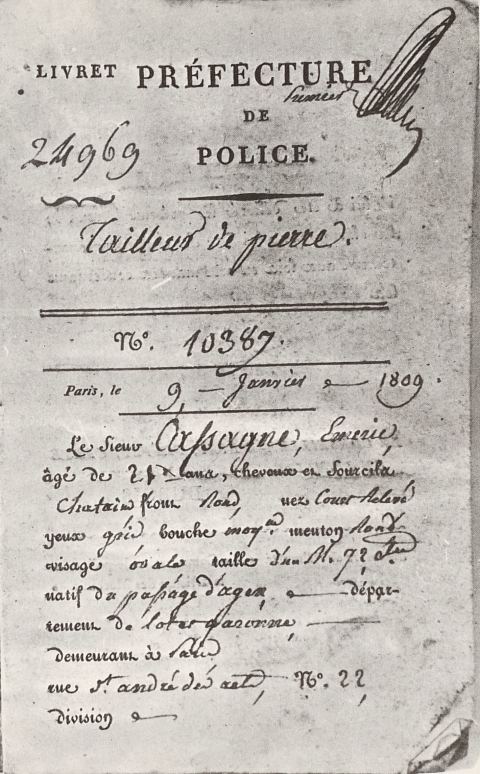 LIVRET PRÉFECTURE
DE
24969
POLICE.
Tailleur de pierre.
N.º 10387.
Paris, le 9 Janvier 1809.
Le Sieur Cassagne, Emeric,
âgé de ans, cheveux et Sourcils
Chatain front Rond nez Court Relevé
yeux gris bouche moy.ne menton Rond
visage óvale taille d'un M. 72
natif du passage d'agen dépar-
tement de lot et garonne,
demeurant à Paris
rue S.t andré des arts, N.º 22
division